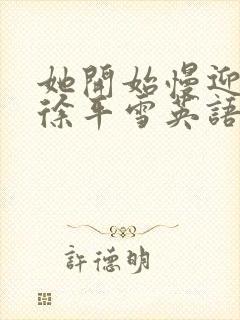 她開始慢迎
徐年雪英語
許德明